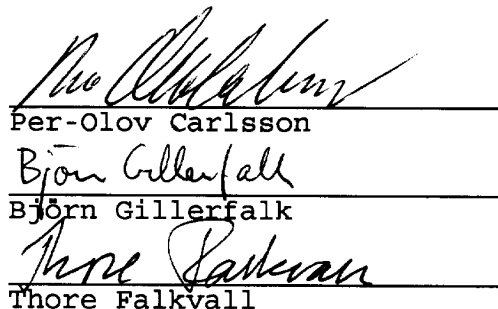 Per-Olov Carlsson
Björn Gillerfalk
Björn Gillerfalk
Thore Falkvall